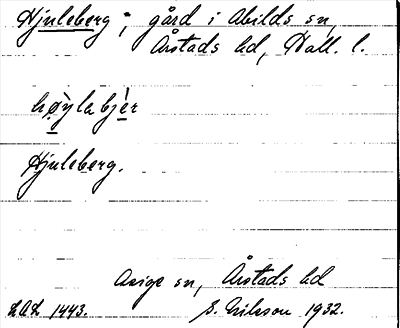 Hjuleberg; gård i Abilds sn,
Årstads hd, Hall. l.
hø̀ylabjèr
Hjuleberg.
Asige sn, Årstads hd
LAL 1443. S. Eriksson 1932.